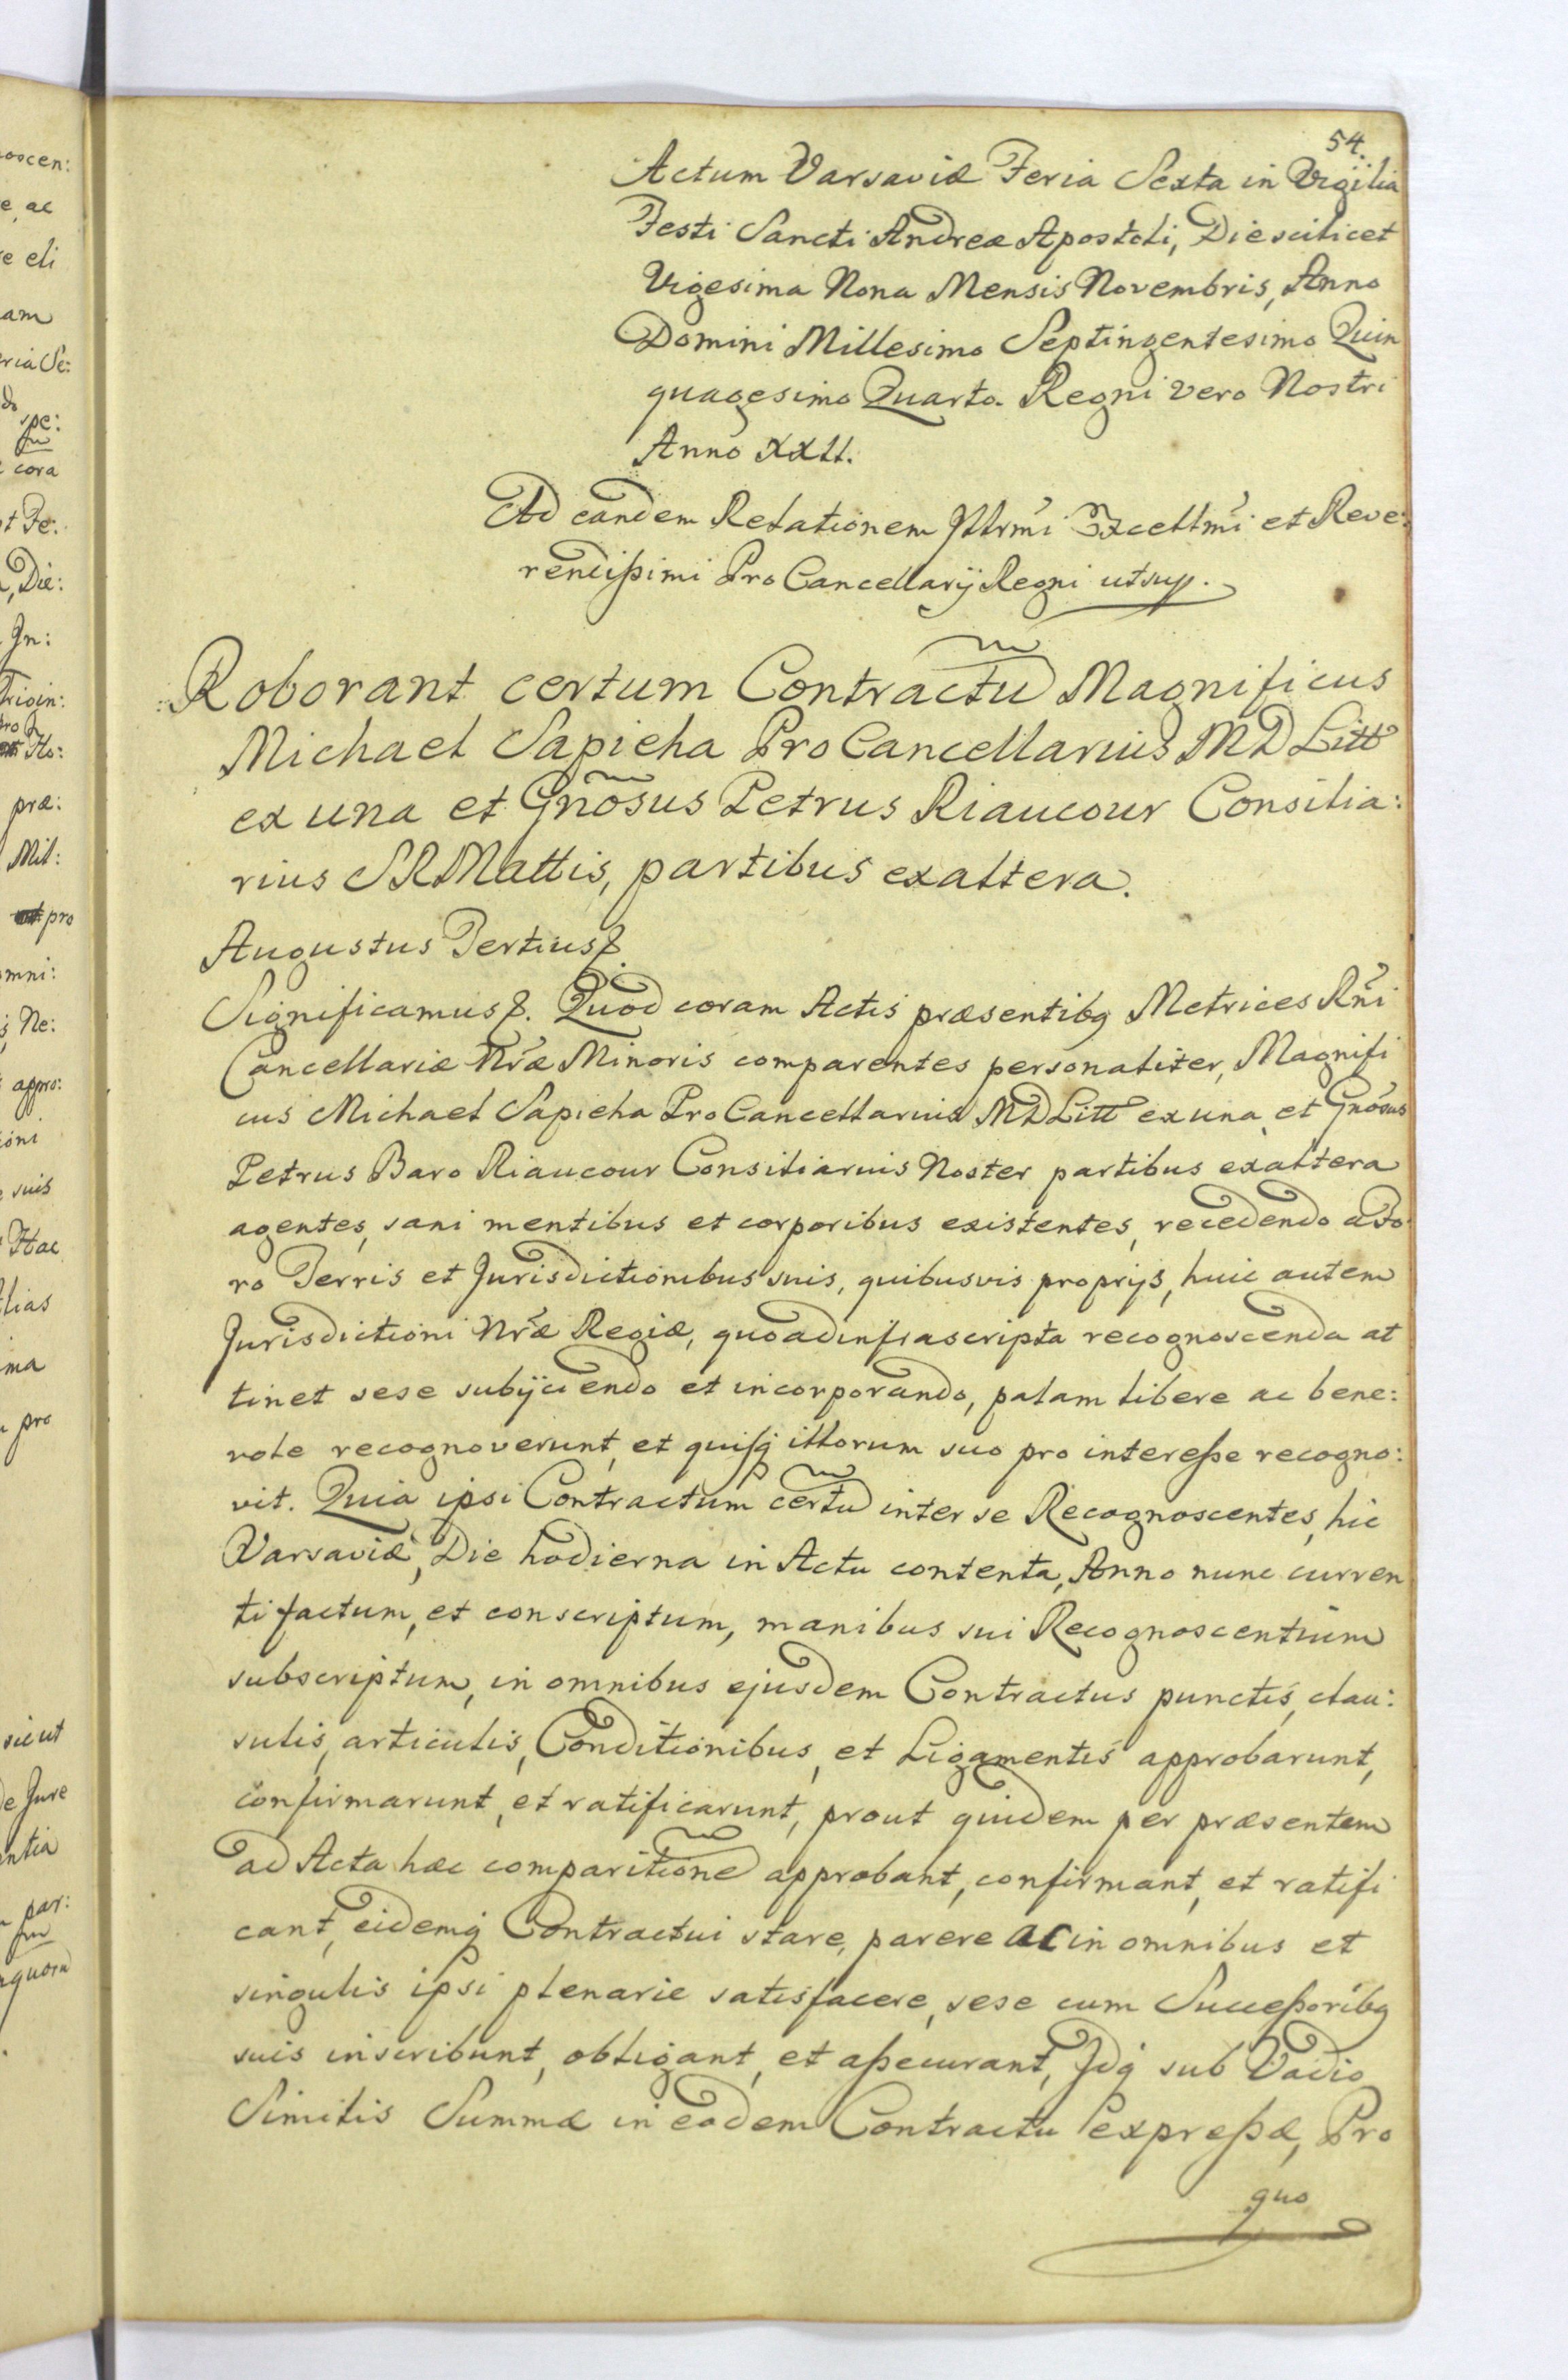 54.
Actum Varsaviæ Feria Sexta in Vigilia
Festi Sancti Andreæ Apostoli, Die scilicet
Vigesima Nona Mensis Novembris, Anno
Domini Millesimo Septingentesimo Quin
quagesimo Quarto. Regni vero Nostri
Anno XXII.
Ad eandem Relationem Illrmi Excellmi et Reve:
rendißimi Pro Cancellarij Regni utsup.
Roborant certum Contractũ Magnificus
Michael Sapieha Pro Cancellarius MD Litt
ex una et Gnõsus Petrus Riaucour Consilia:
rius SRMattis, partibus exaltera.
Augustus Tertius
Significamus. Quod coram Actis præsentibq Metrices Rñi
Cancellariæ Nræ Minoris comparentes personaliter, Magnifi
cus Michael Sapieha Pro Cancellarius MD Litt ex una, et Gnõsus
Petrus Baro Riaucour Consiliarius Noster partibus exaltera
agentes, sani mentibus et corporibus existentes, recedendo a Fo
ro Terris et Jurisdictionibus suis, quibusvis proprijs, huic autem
Jurisdictioni Nræ Regiæ, quoad infrascripta recognoscenda at
tinet sese subijciendo et incorporando, palam libere ac bene:
vole recognoverunt, et quisq illorum suo pro intereße recogno:
vit. Quia ipsi Contractum certũ inter se Recognoscentes, hic
Varsaviæ, Die hodierna in Actu contenta, Anno nunc curren
ti factum, et conscriptum, manibus sui Recognoscentium
subscriptum, in omnibus ejusdem Contractus punctis, clau:
sulis, articulis, Conditionibus, et Ligamentis approbarunt,
confirmarunt, et ratificarunt, prout quidem per præsentem
ad Acta hæc comparitionẽ approbant, confirmant, et ratifi
cant, eidemq Contractui stare, parere ac in omnibus et
singulis ipsi plenarie satisfacere, sese cum Succeßoribq
suis inscribunt, obligant, et aßecurant, Idq sub Vadio
Similis Summæ in eodem Contractu expreßæ, Pro
quo